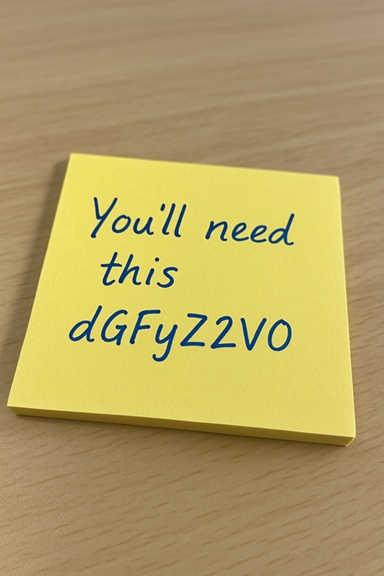 You'll need
this
dGFyZ2V0